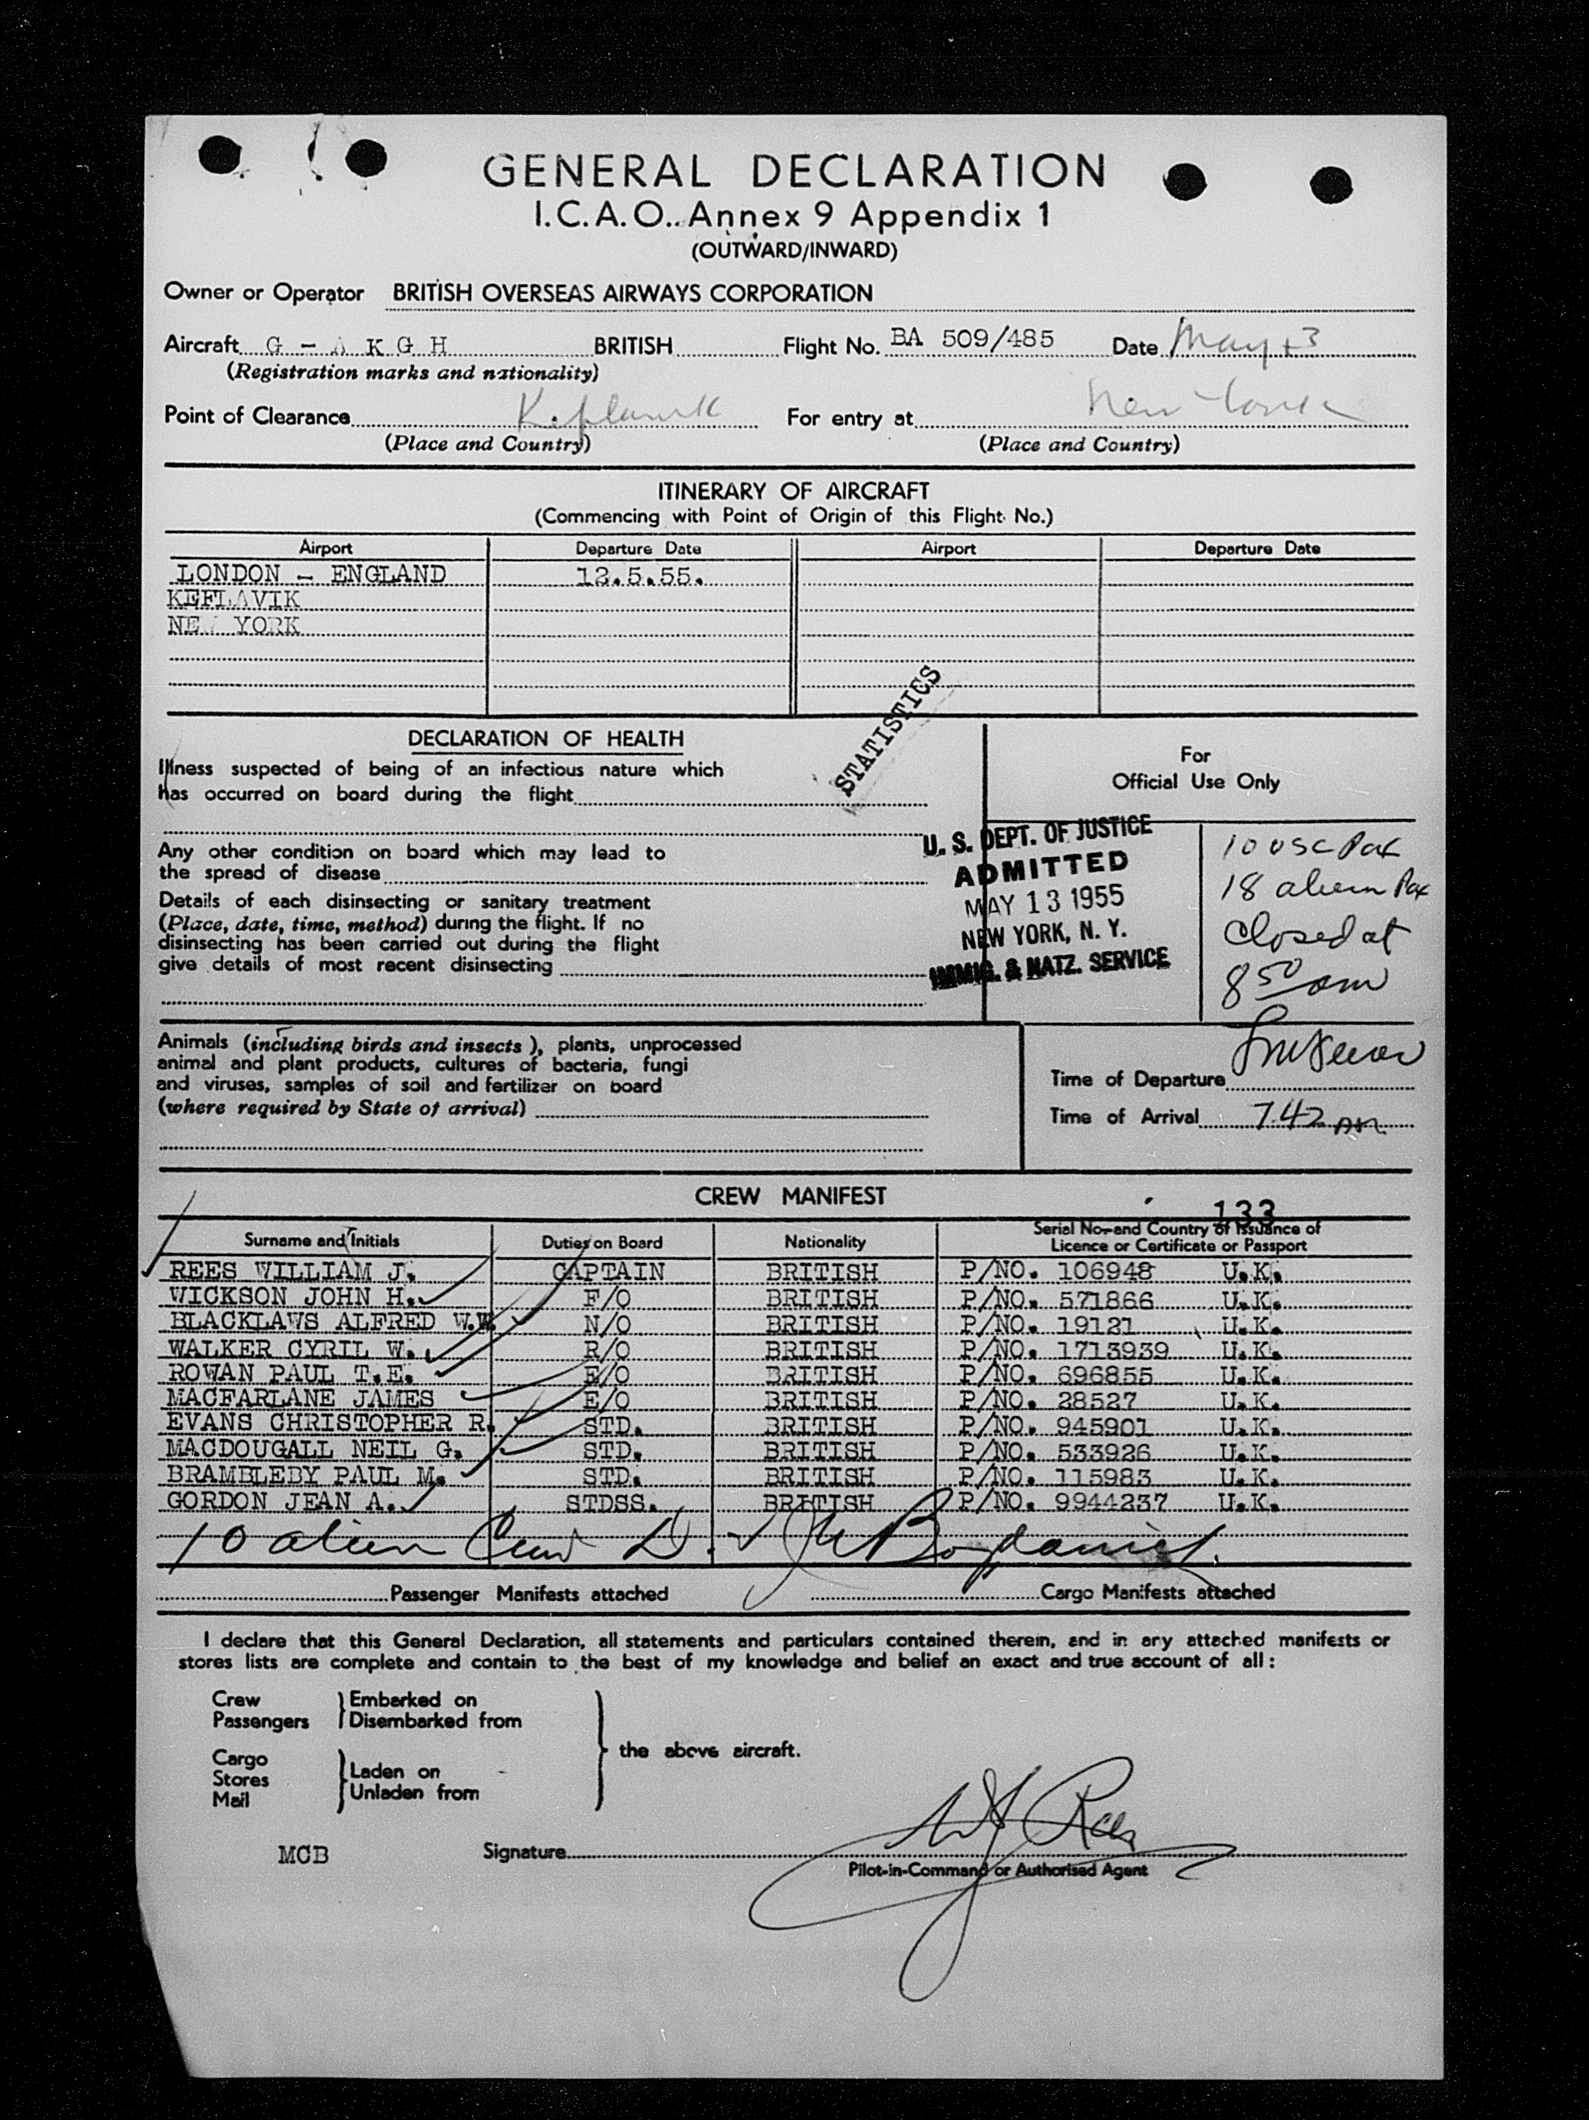 GENERAL DECLARATION
I.C.A.O. Annex 9 Appendix 1
(OUTWARD/INWARD)
Owner or Operator BRITISH OVERSEAS AIRWAYS CORPORATION
Aircraft G - A K G H BRITISH Flight No. BA 509/485 Date May 13
(Registration marks and nationality)
Point of Clearance Keflavik For entry at New York
(Place and Country) (Place and Country)
ITINERARY OF AIRCRAFT
(Commencing with Point of Origin of this Flight No.)
Airport Departure Date Airport Departure Date
LONDON - ENGLAND 12.5.55.
KEFLAVIK
NEW YORK
STATISTICS
DECLARATION OF HEALTH
Illness suspected of being of an infectious nature which
has occurred on board during the flight
Any other condition on board which may lead to
the spread of disease
Details of each disinsecting or sanitary treatment
(Place, date, time, method) during the flight. If no
disinsecting has been carried out during the flight
give details of most recent disinsecting
For
Official Use Only
U. S. DEPT. OF JUSTICE
ADMITTED
MAY 13 1955
NEW YORK, N. Y.
IMMIG. & NATZ. SERVICE
10 USC Pax
18 alien Pax
Closed at
8 50 am
Animals (including birds and insects), plants, unprocessed
animal and plant products, cultures of bacteria, fungi
and viruses, samples of soil and fertilizer on board
(where required by State of arrival)
Time of Departure
Time of Arrival 7.42 AM
CREW MANIFEST
133
Surname and Initials Duties on Board Nationality Serial No. and Country of Issuance of
Licence or Certificate or Passport
REES WILLIAM J. CAPTAIN BRITISH P/NO. 106948 U.K.
WICKSON JOHN H. F/O BRITISH P/NO. 571866 U.K.
BLACKLAWS ALFRED W.W. N/O BRITISH P/NO. 19121 U.K.
WALKER CYRIL W. R/O BRITISH P/NO. 1713939 U.K.
ROWAN PAUL T.E. E/O BRITISH P/NO. 696855 U.K.
MACFARLANE JAMES E/O BRITISH P/NO. 28527 U.K.
EVANS CHRISTOPHER R. STD. BRITISH P/NO. 945901 U.K.
MACDOUGALL NEIL G. STD. BRITISH P/NO. 533926 U.K.
BRAMBLEBY PAUL M. STD. BRITISH P/NO. 115983 U.K.
GORDON JEAN A. STDSS. BRITISH P/NO. 9944237 U.K.
10 alien Crew D.
Passenger Manifests attached Cargo Manifests attached
I declare that this General Declaration, all statements and particulars contained therein, and in any attached manifests or
stores lists are complete and contain to the best of my knowledge and belief an exact and true account of all :
Crew Embarked on
Passengers Disembarked from
the above aircraft.
Cargo
Stores Laden on
Mail Unladen from
MCB Signature W J Rees
Pilot-in-Command or Authorised Agent